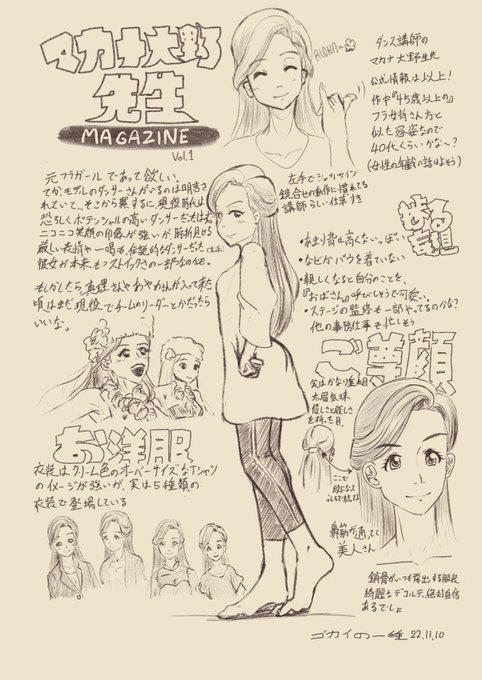 マカナ大野
先生
MAGAZINE
Vol.1
ALOHA〜
ダンス講師の
マカナ大野先生
公式情報は以上!
作中『45歳以上の』
フラ女将さん方と
似た容姿なので
40代くらいかな〜?
(女性の年齢の話はよそう)
左手でシャカサイン
鏡合せの動作に慣れてる
講師らしい仕事すき
元フラガールであって欲しい。
てかモデルのダンサーさんがいるのは明言さ
れていて、そこから察するに現役時代は
恐ろしくポテンシャルの高いダンサーだたはず
ニコニコ笑顔の印象が強いが時折見せる
厳しい表情や一喝も、伝説的なダンサーだった
彼女が本来もつストイックさの一部なのかも。
もしかしたら、真理さんやあやめさんが入って来た
頃はまだ現役でチームのリーダーとかだったら
いいな。
・あまり背は高くないっぽい
・なぜかパウを着ていない
・親しくなると自分のことを、
『おばさん』呼びしそうで可愛い。
・ステージの監修も一部やってるのかな?
他の事務仕事も忙しそう
ご尊顔
実はかなり垂れ目
太眉気味
優しさと厳しさ
を持った目
ここで
鼻筋が通ってて
美人さん
鎖骨がいつも露出する服装
綺麗なデコルテ、絶対自信
あるでしょ
お洋服
衣装はクリーム色のオーバーサイズなTシャツ
のイメージが強いが、実は5種類の
衣装で登場している
ゴカイの一種 22.11.10